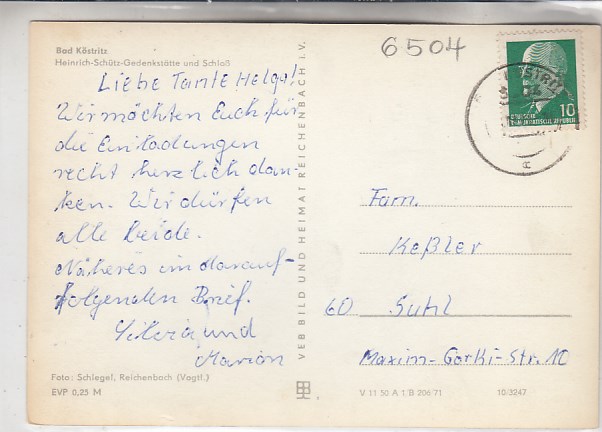 Bad Köstritz
Heinrich-Schütz-Gedenkstätte und Schloß
Liebe Tante Helga!
Wir möchten Euch für
die Einladungen
recht herzlich dan-
ken. Wir dürfen
alle beide.
Näheres im darauf-
folgenden Brief.
Silvia und
Marion
Foto: Schlegel, Reichenbach (Vogtl.)
EVP 0,25 M
VEB BILD UND HEIMAT REICHENBACH i. V.
6504
10
DEUTSCHE
DEMOKRATISCHE REPUBLIK
Fam.
Keßler
60 Suhl
Maxim-Gorki-Str. 10
V 11 50 A 1 B 206/71 10/3247